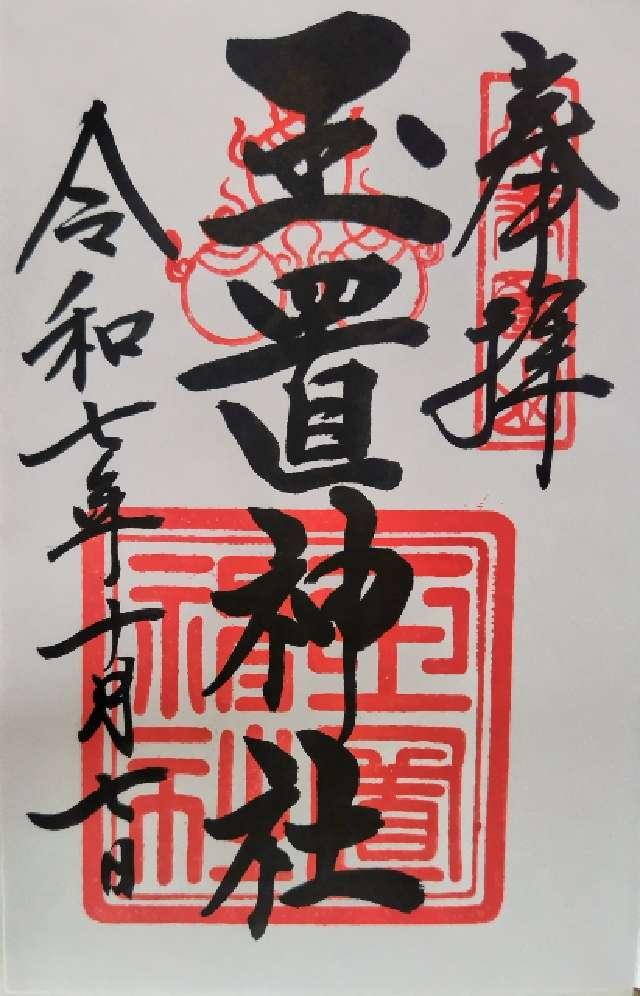 奉拝
玉置神社
令和七年十月七日
玉置神社